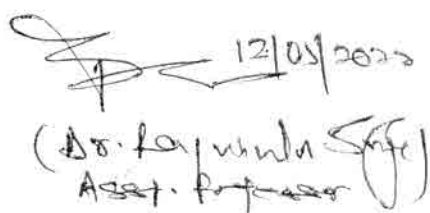 12/05/2022
(Dr. Rajvinder Singh)
Asst. Professor